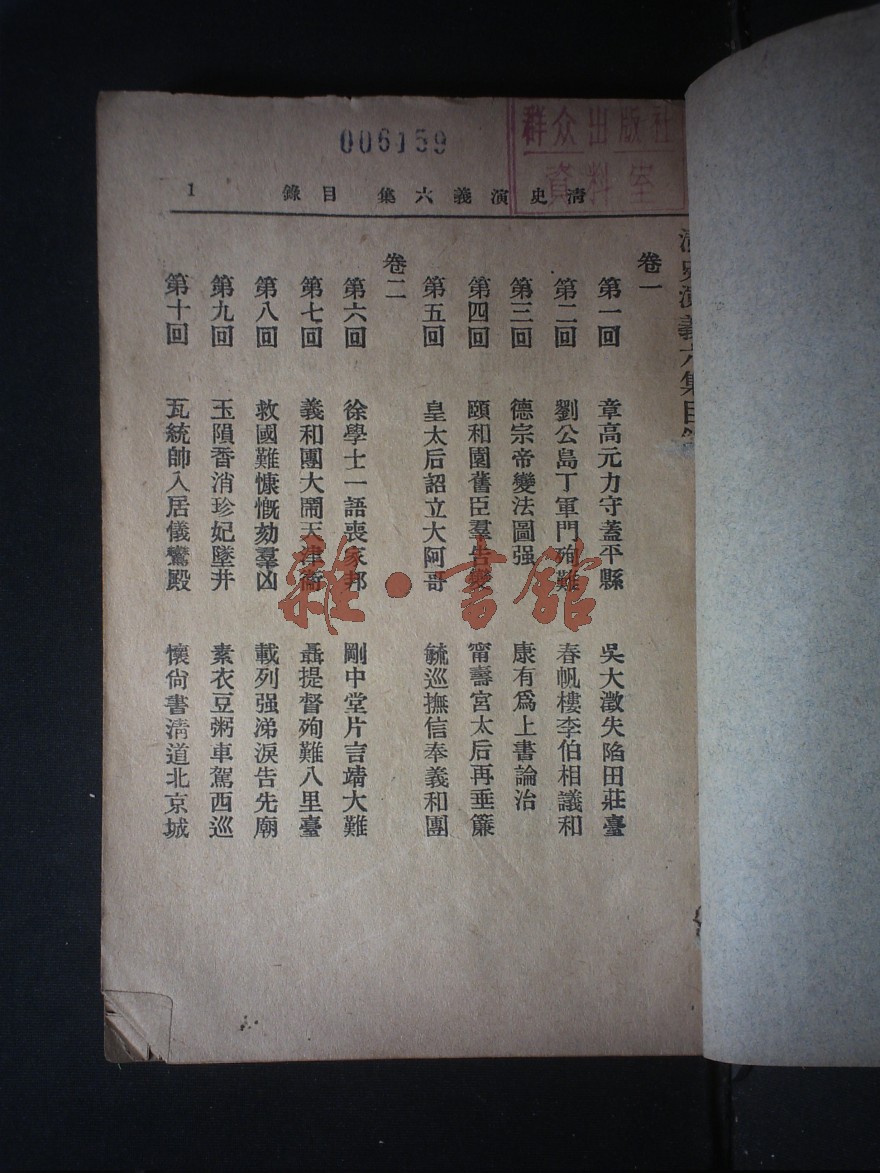 006159
群众出版社
資料室
清史演義六集 目錄 1
清史演義六集目
卷一
第一回 章高元力守蓋平縣 吳大澂失陷田莊臺
第二回 劉公島丁軍門殉難 春帆樓李伯相議和
第三回 德宗帝變法圖强 康有爲上書論治
第四回 頤和園舊臣羣告變 甯壽宮太后再垂簾
第五回 皇太后詔立大阿哥 毓巡撫信奉義和團
卷二
第六回 徐學士一語喪家邦 剛中堂片言靖大難
第七回 義和團大鬧天津衞 聶提督殉難八里臺
第八回 救國難慷慨劾羣凶 載列强涕淚告先廟
第九回 玉隕香消珍妃墜井 素衣豆粥車駕西巡
第十回 瓦統帥入居儀鸞殿 懷尙書淸道北京城
雜·書館